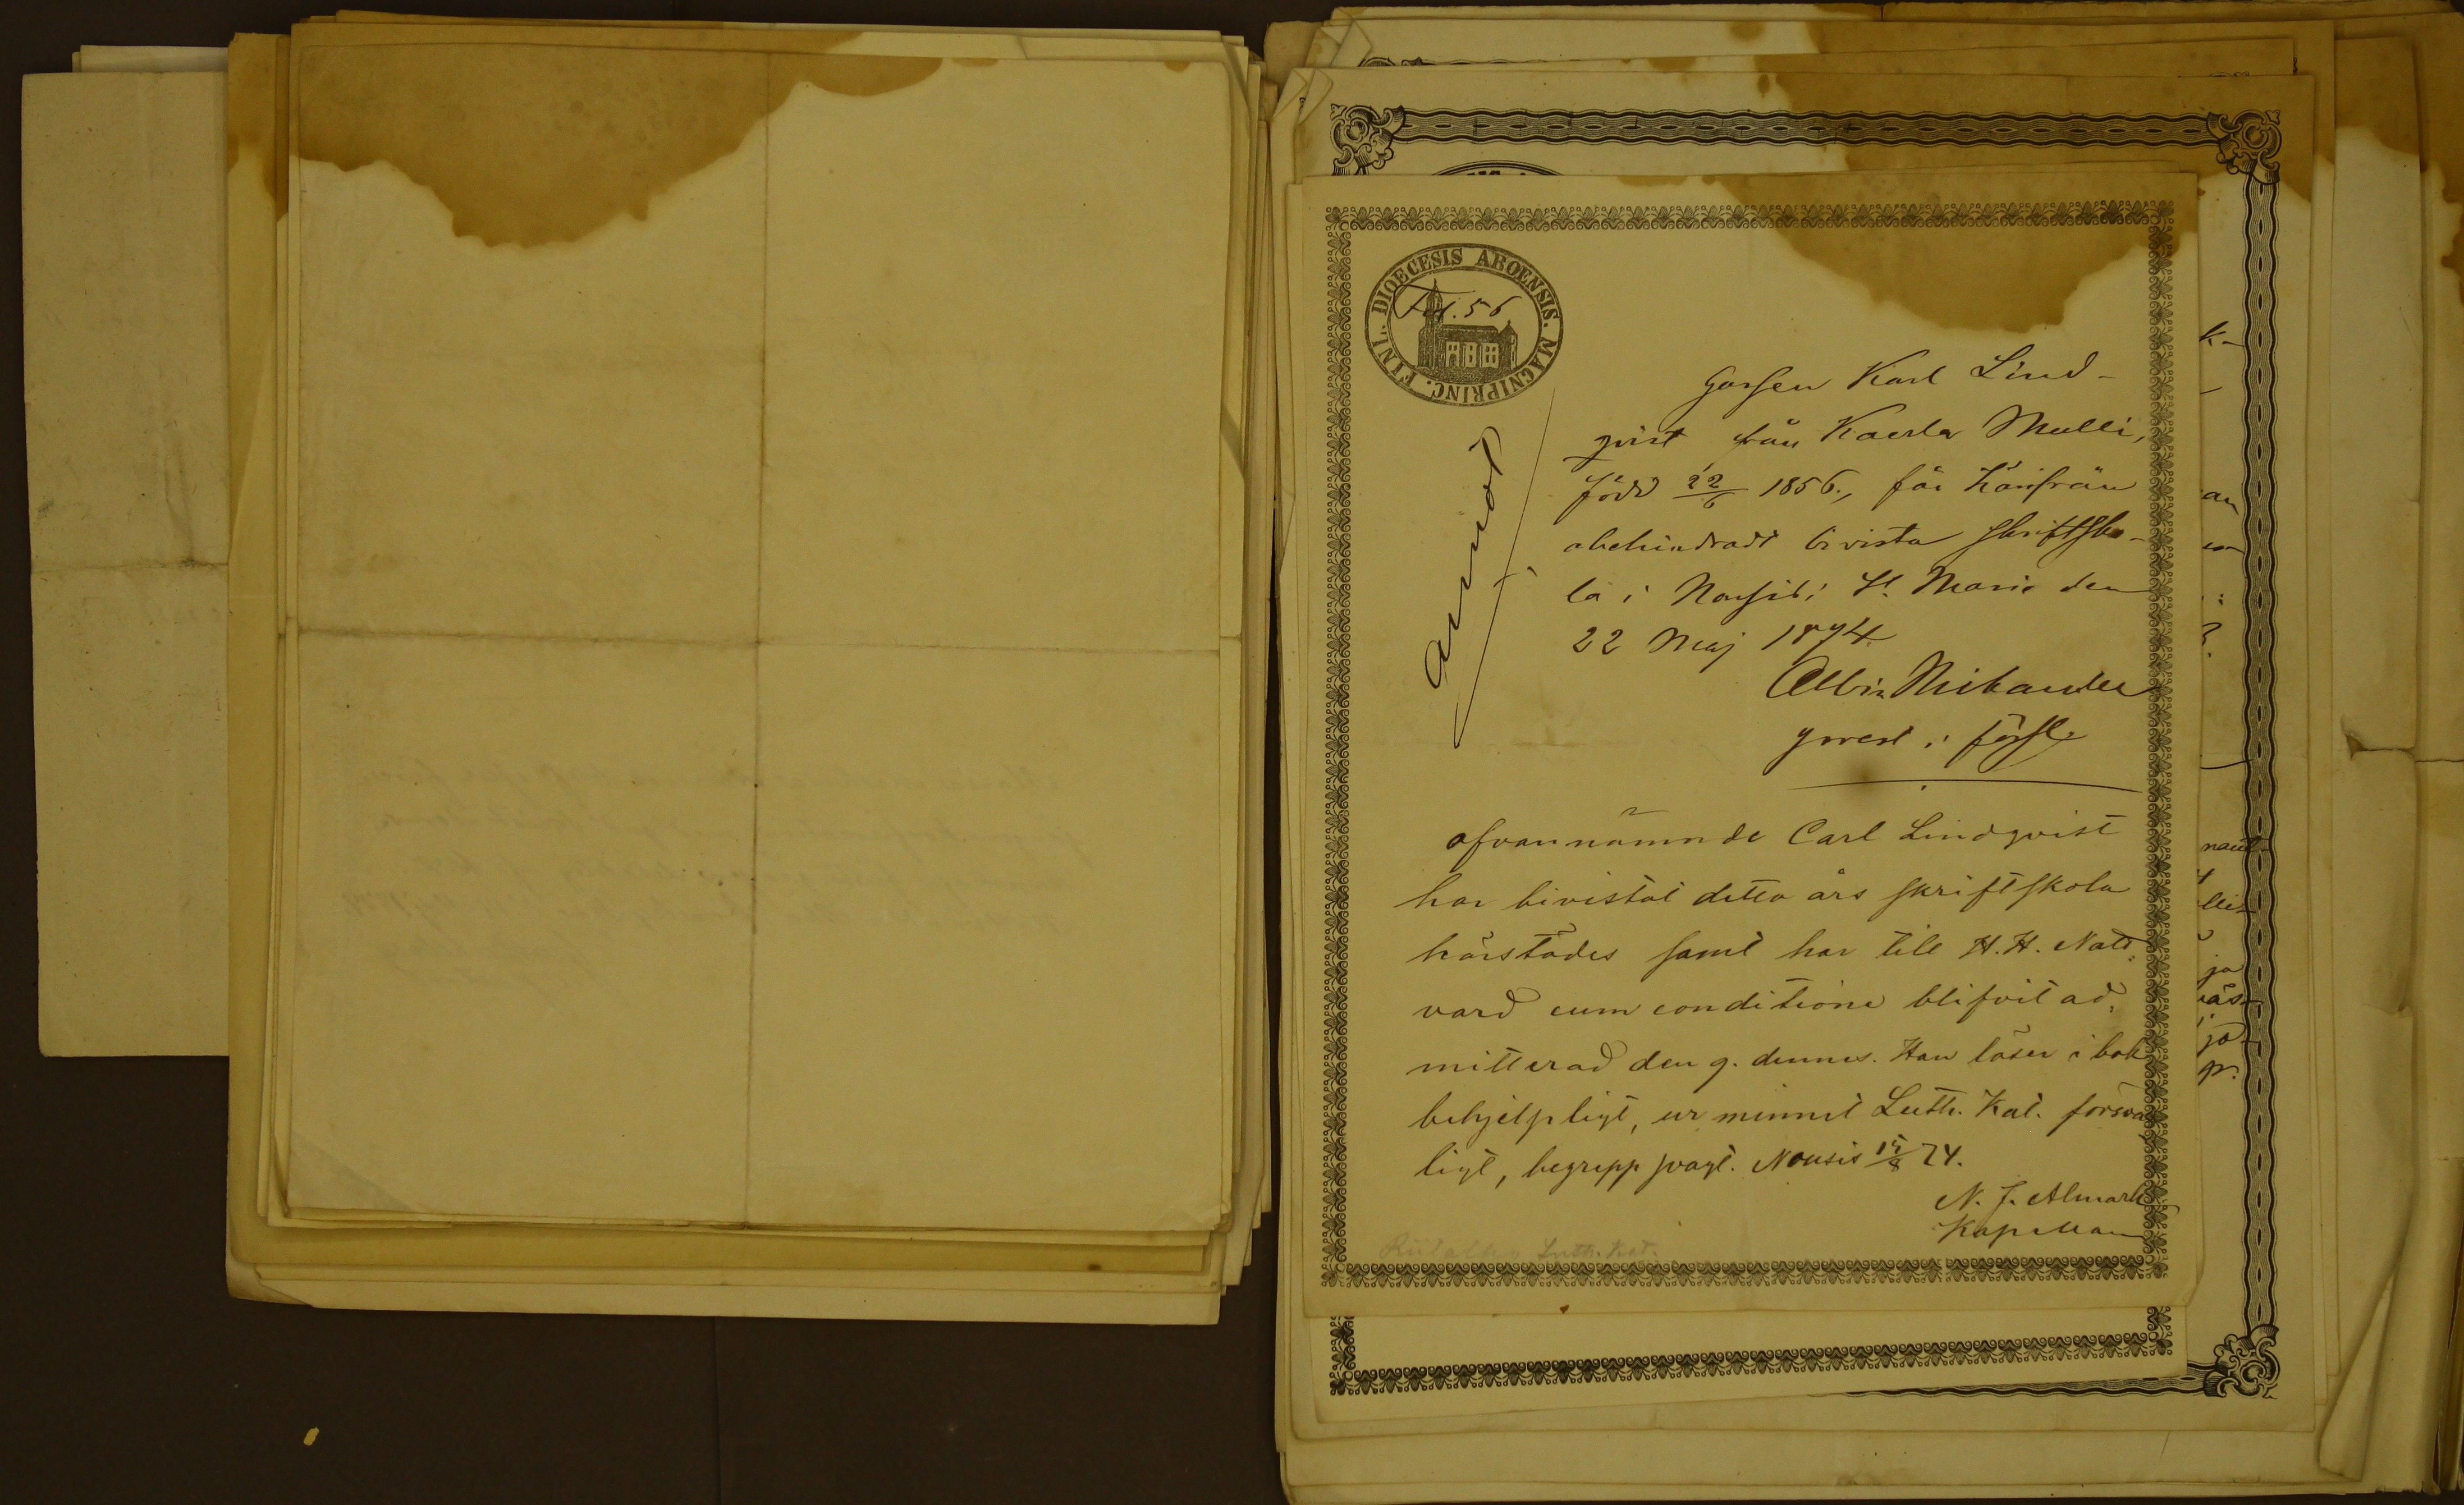 DIOECESIS ABOENSIS. MAGNIPRINC. FINL.
Fol. 56
Gossen Karl Lind-
qvist från Kaerla Mulli,
född 22/6 1856., får härifrån
obehindradt bivista skriftsko-
la i Nousis; St. Marie den
22 Maj 1874.
Albin Mikander
prest i förs.
ofvannämnde Carl Lindqvist
har bivistat detta års skriftskola
härstädes samt har till H. H. Natt-
vard cum conditione blifvit ad-
mitterad den 9. dennes. Han läser i bok
behjelpligt, ur minnet Luth. Kat. försva
ligt, begrepp svagt. Nousis 74.
N. J. Almark
Kapellan
Luth. Kat.